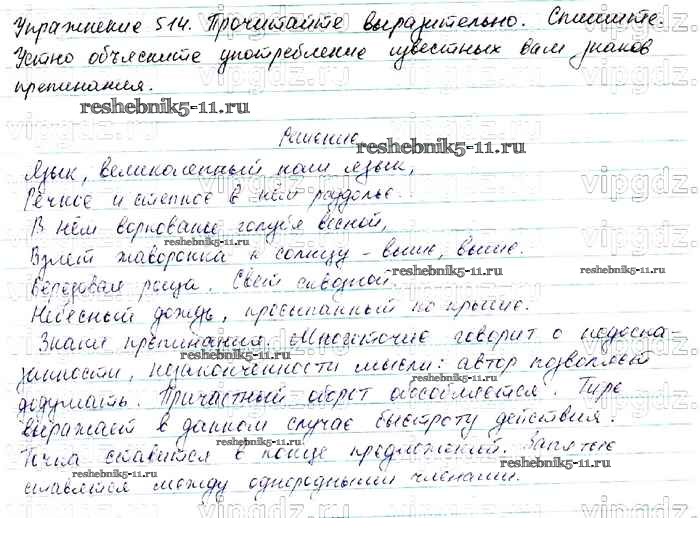 Упражнение 514. Прочитайте выразительно. Спишите.
Устно объясните употребление известных вам знаков
препинания.
reshebnik5-11.ru
Решение
reshebnik5-11.ru
Язык, великолепный наш язык,
Речное и степное в нём раздолье...
В нём воркованье голубя весной,
Взлёт жаворонка к солнцу - выше, выше.
reshebnik5-11.ru
Берёзовая роща. Свет сквозной.
reshebnik5-11.ru
Небесный дождь, просыпанный по крыше.
Знаки препинания. Многоточие говорит о недоска-
reshebnik5-11.ru
занности, незаконченности мысли: автор позволяет
додумать. Причастный оборот обособляется. Тире
reshebnik5-11.ru
выражает в данном случае быстроту действия.
reshebnik5-11.ru
Точка ставится в конце предложений. Запятые
reshebnik5-11.ru
ставятся между однородными членами.
reshebnik5-11.ru
vipgdz.ru